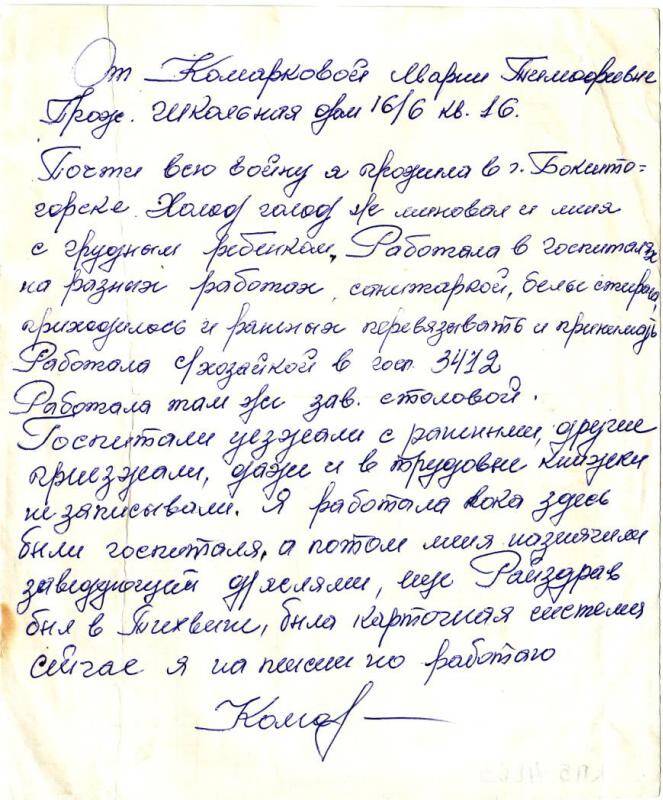 От Комарковой Марии Тимофеевне
Прож. школьная дом 16/6 кв. 16.
Почти всю войну я прожила в г. Бокито-
горске. Холод голод не миновал и миня
с грудным ребенком. Работала в госпиталях
на разных работах, санитаркой, белье стирала,
приходилось и раненых перевязывать и принимать
Работала с/хозайкой в госп. 3412
Работала там же зав. столовой.
Госпитали уезжали с ранеными, другие
приезжали, даже и в трудовые книжки
не записывали. Я работала пока здесь
были госпиталя, а потом миня назначили
заведующей д/яслями, еще Райздрав
был в Тихвине, была карточная система
сейчас я на пенсии но работаю
Комар